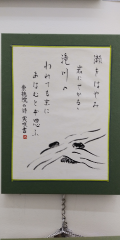 瀬をはやみ
岩にせかるゝ
滝川の
われても末に
あはむとぞ思ふ
崇徳院の詩